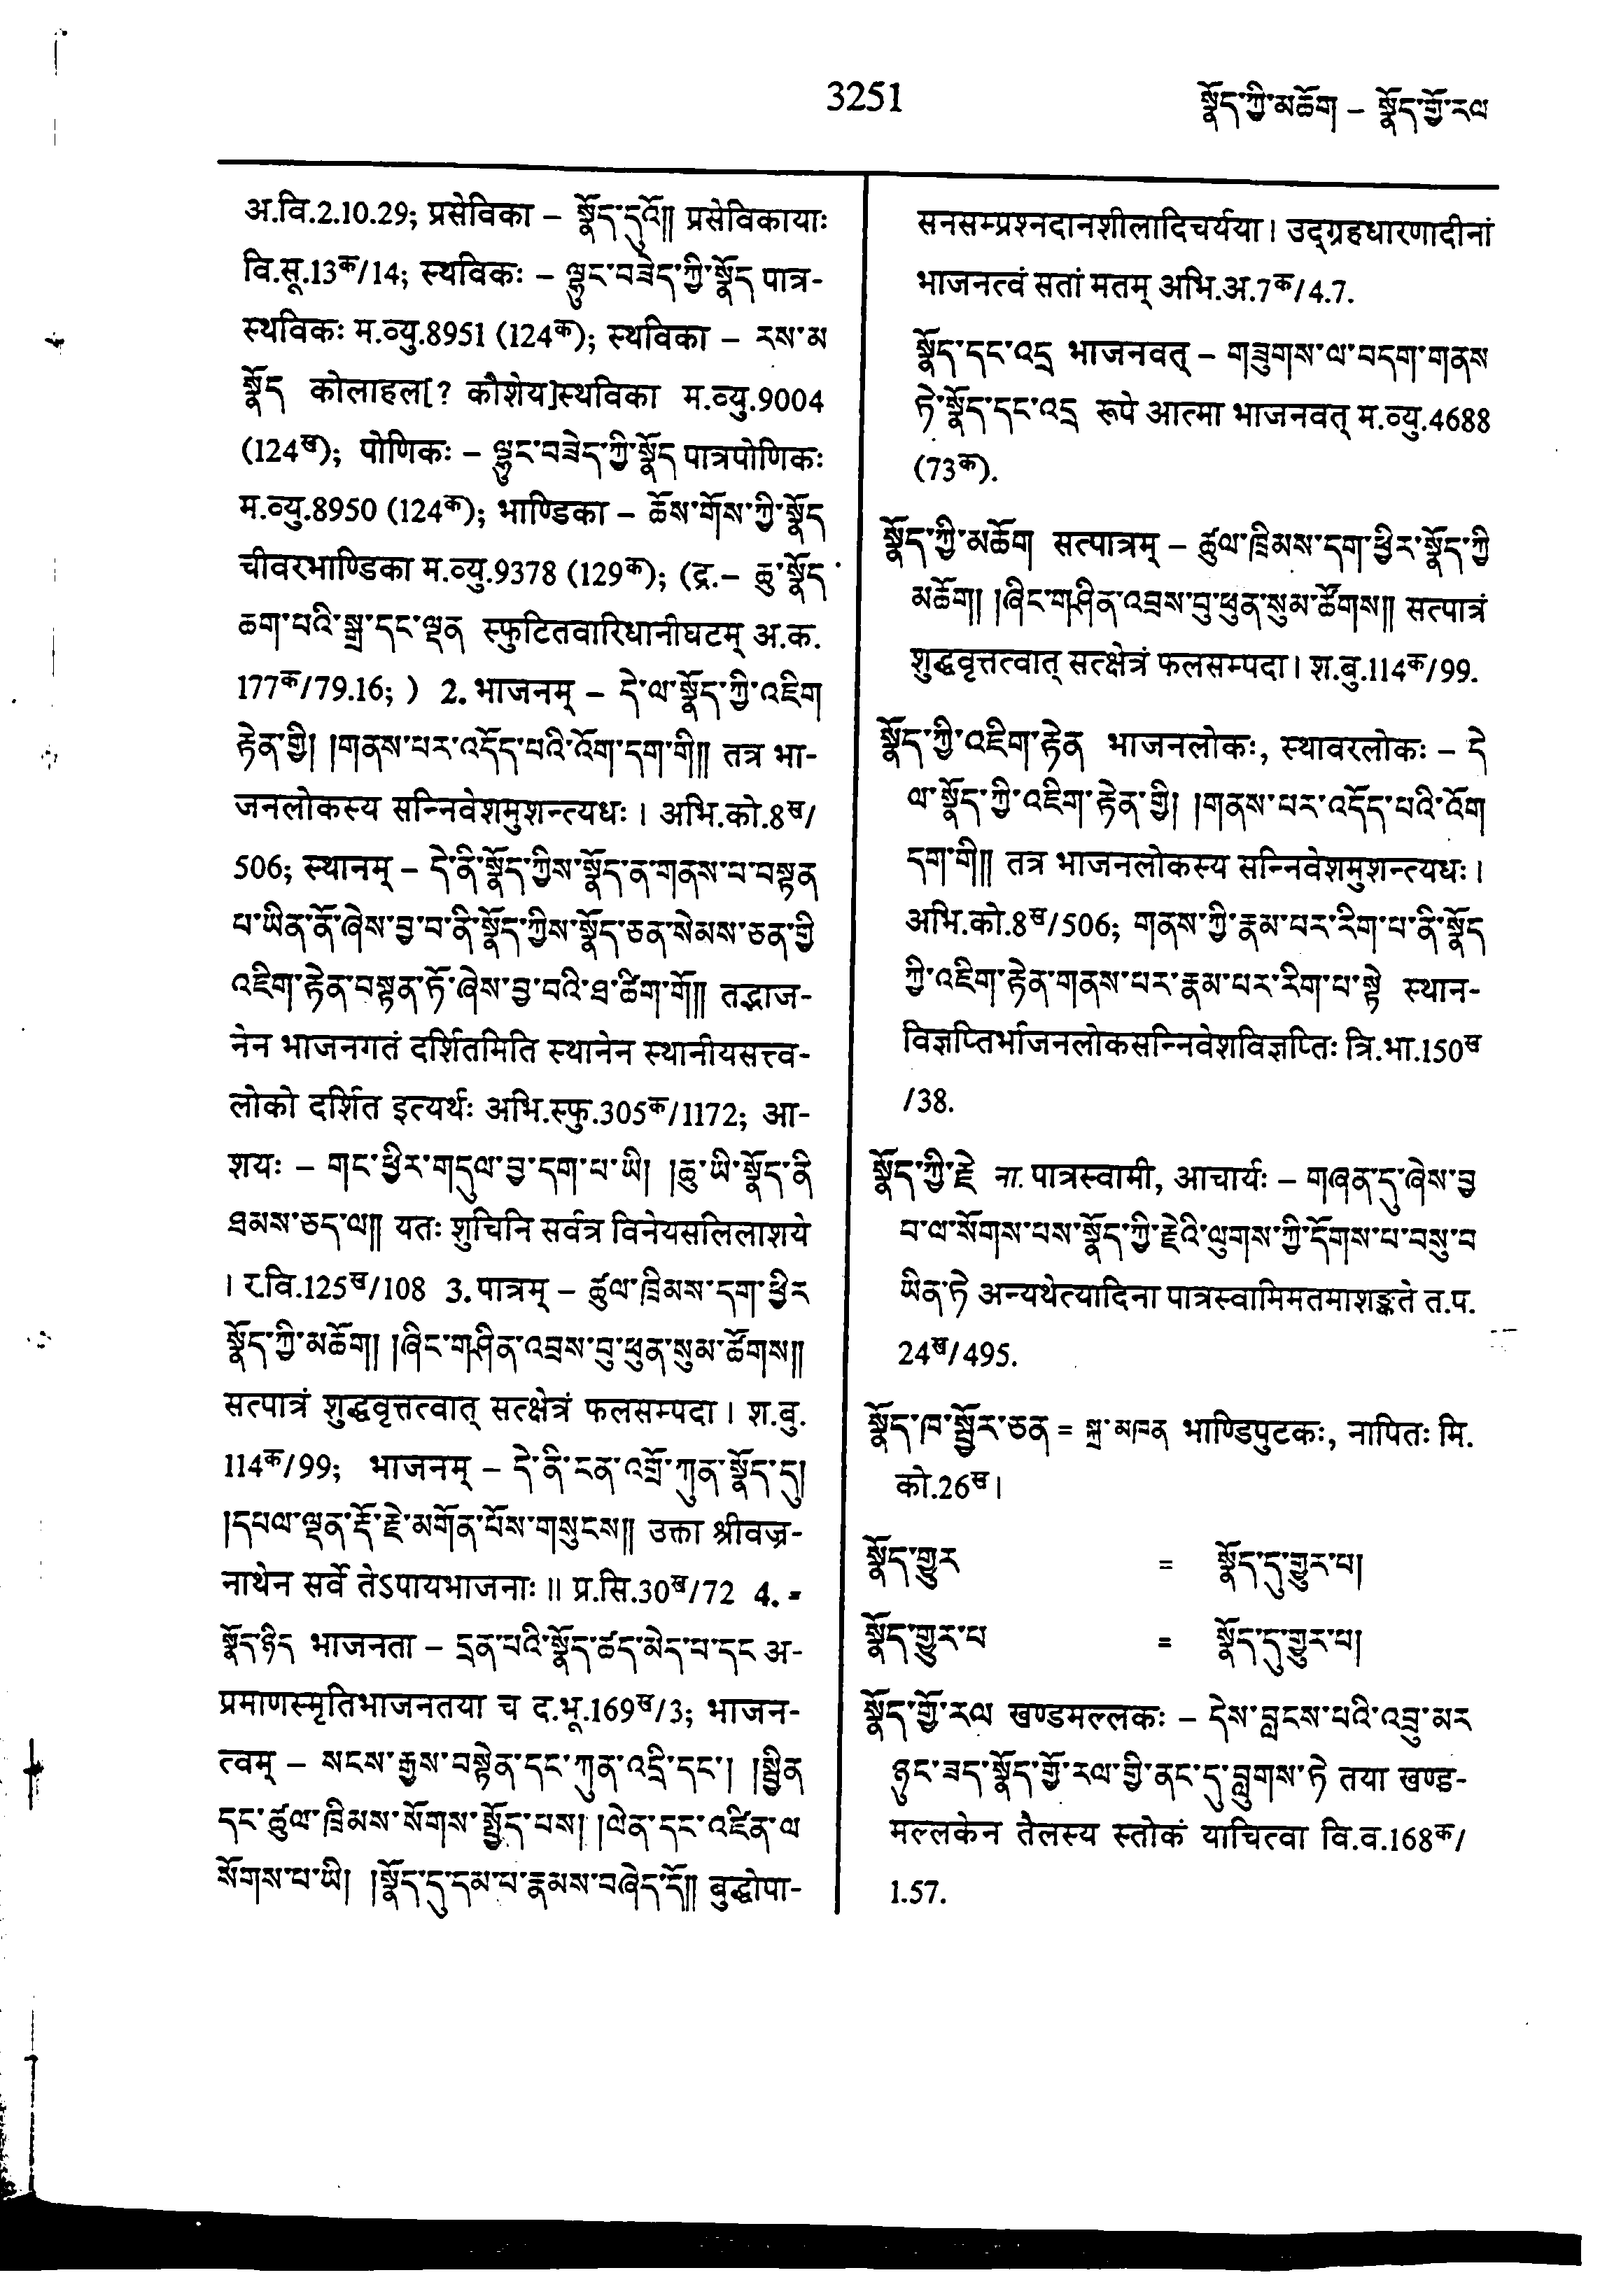 3251
སྣོད་ཀྱི་མཆོག – སྣོད་གྱོ་རལ
अ.वि.2.10.29; प्रसेविका – སྣོད་དུའོ།། प्रसेविकायाः
वि.सू.13क/14; स्थविकः – ལྷུང་བཟེད་ཀྱི་སྣོད पात्र-
स्थविकः म.व्यु.8951 (124क); स्थविका – རས་མ
སྣོད कोलाहल[? कौशेय]स्थविका म.व्यु.9004
(124ख); पोणिकः – ལྷུང་བཟེད་ཀྱི་སྣོད पात्रपोणिकः
म.व्यु.8950 (124क); भाण्डिका – ཆོས་གོས་ཀྱི་སྣོད
चीवरभाण्डिका म.व्यु.9378 (129क); (द्र.– ཆུ་སྣོད་
ཆག་པའི་སྒྲ་དང་ལྡན स्फुटितवारिधानीघटम् अ.क.
177क/79.16; ) 2. भाजनम् – དེ་ལ་སྣོད་ཀྱི་འཇིག
རྟེན་གྱི། །གནས་པར་འདོད་པའི་འོག་དག་གི།། तत्र भा-
जनलोकस्य सन्निवेशमुशन्त्यधः । अभि.को.8ख/
506; स्थानम् – དེ་ནི་སྣོད་ཀྱིས་སྣོད་ན་གནས་པ་བསྟན
པ་ཡིན་ནོ་ཞེས་བྱ་བ་ནི་སྣོད་ཀྱིས་སྣོད་ཅན་སེམས་ཅན་གྱི
འཇིག་རྟེན་བསྟན་ཏོ་ཞེས་བྱ་བའི་ཐ་ཚིག་གོ།། तद्भाज-
नेन भाजनगतं दर्शितमिति स्थानेन स्थानीयसत्त्व-
लोको दर्शित इत्यर्थः अभि.स्फु.305क/1172; आ-
शयः – གང་ཕྱིར་གདུལ་བྱ་དག་པ་ཡི། །ཆུ་ཡི་སྣོད་ནི
ཐམས་ཅད་ལ།། यतः शुचिनि सर्वत्र विनेयसलिलाशये
। र.वि.125ख/108 3. पात्रम् – ཚུལ་ཁྲིམས་དག་ཕྱིར
སྣོད་ཀྱི་མཆོག། །ཞིང་གཤིན་འབྲས་བུ་ཕུན་སུམ་ཚོགས།།
सत्पात्रं शुद्धवृत्तत्वात् सत्क्षेत्रं फलसम्पदा । श.बु.
114क/99; भाजनम् – དེ་ནི་ངན་འགྲོ་ཀུན་སྣོད་དུ།
།དཔལ་ལྡན་རྡོ་རྗེ་མགོན་པོས་གསུངས།། उक्ता श्रीवज्र-
नाथेन सर्वे तेऽपायभाजनाः ॥ प्र.सि.30ख/72 4. =
སྣོད་ཉིད भाजनता – དྲན་པའི་སྣོད་ཚད་མེད་པ་དང अ-
प्रमाणस्मृतिभाजनतया च द.भू.169ख/3; भाजन-
त्वम् – སངས་རྒྱས་བསྟེན་དང་ཀུན་འདྲི་དང་། །སྦྱིན
དང་ཚུལ་ཁྲིམས་སོགས་སྤྱོད་པས། །ལེན་དང་འཛིན་ལ
སོགས་པ་ཡི། །སྣོད་དུ་དམ་པ་རྣམས་བཞེད་དོ།། बुद्धोपा-
सनसम्प्रश्नदानशीलादिचर्यया । उद्ग्रहधारणादीनां
भाजनत्वं सतां मतम् अभि.अ.7क/4.7.
སྣོད་དང་འདྲ भाजनवत् – གཟུགས་ལ་བདག་གནས
ཏེ་སྣོད་དང་འདྲ रूपे आत्मा भाजनवत् म.व्यु.4688
(73क).
སྣོད་ཀྱི་མཆོག सत्पात्रम् – ཚུལ་ཁྲིམས་དག་ཕྱིར་སྣོད་ཀྱི
མཆོག། །ཞིང་གཤིན་འབྲས་བུ་ཕུན་སུམ་ཚོགས།། सत्पात्रं
शुद्धवृत्तत्वात् सत्क्षेत्रं फलसम्पदा । श.बु.114क/99.
སྣོད་ཀྱི་འཇིག་རྟེན भाजनलोकः, स्थावरलोकः – དེ
ལ་སྣོད་ཀྱི་འཇིག་རྟེན་གྱི། །གནས་པར་འདོད་པའི་འོག
དག་གི།། तत्र भाजनलोकस्य सन्निवेशमुशन्त्यधः ।
अभि.को.8ख/506; གནས་ཀྱི་རྣམ་པར་རིག་པ་ནི་སྣོད
ཀྱི་འཇིག་རྟེན་གནས་པར་རྣམ་པར་རིག་པ་སྟེ स्थान-
विज्ञप्तिर्भाजनलोकसन्निवेशविज्ञप्तिः त्रि.भा.150ख
/38.
སྣོད་ཀྱི་རྗེ ना. पात्रस्वामी, आचार्यः – གཞན་དུ་ཞེས་བྱ
བ་ལ་སོགས་པས་སྣོད་ཀྱི་རྗེའི་ལུགས་ཀྱི་དོགས་པ་བསུ་བ
ཡིན་ཏེ अन्यथेत्यादिना पात्रस्वामिमतमाशङ्कते त.प.
24ख/495.
སྣོད་ཁ་སྦྱོར་ཅན = སྐྲ་མཁན भाण्डिपुटकः, नापितः मि.
को.26ख।
སྣོད་གྱུར = སྣོད་དུ་གྱུར་པ།
སྣོད་གྱུར་པ = སྣོད་དུ་གྱུར་པ།
སྣོད་གྱོ་རལ खण्डमल्लकः – དེས་བླངས་པའི་འབྲུ་མར
ཉུང་ཟད་སྣོད་གྱོ་རལ་གྱི་ནང་དུ་བླུགས་ཏེ तया खण्ड-
मल्लकेन तैलस्य स्तोकं याचित्वा वि.व.168क/
1.57.